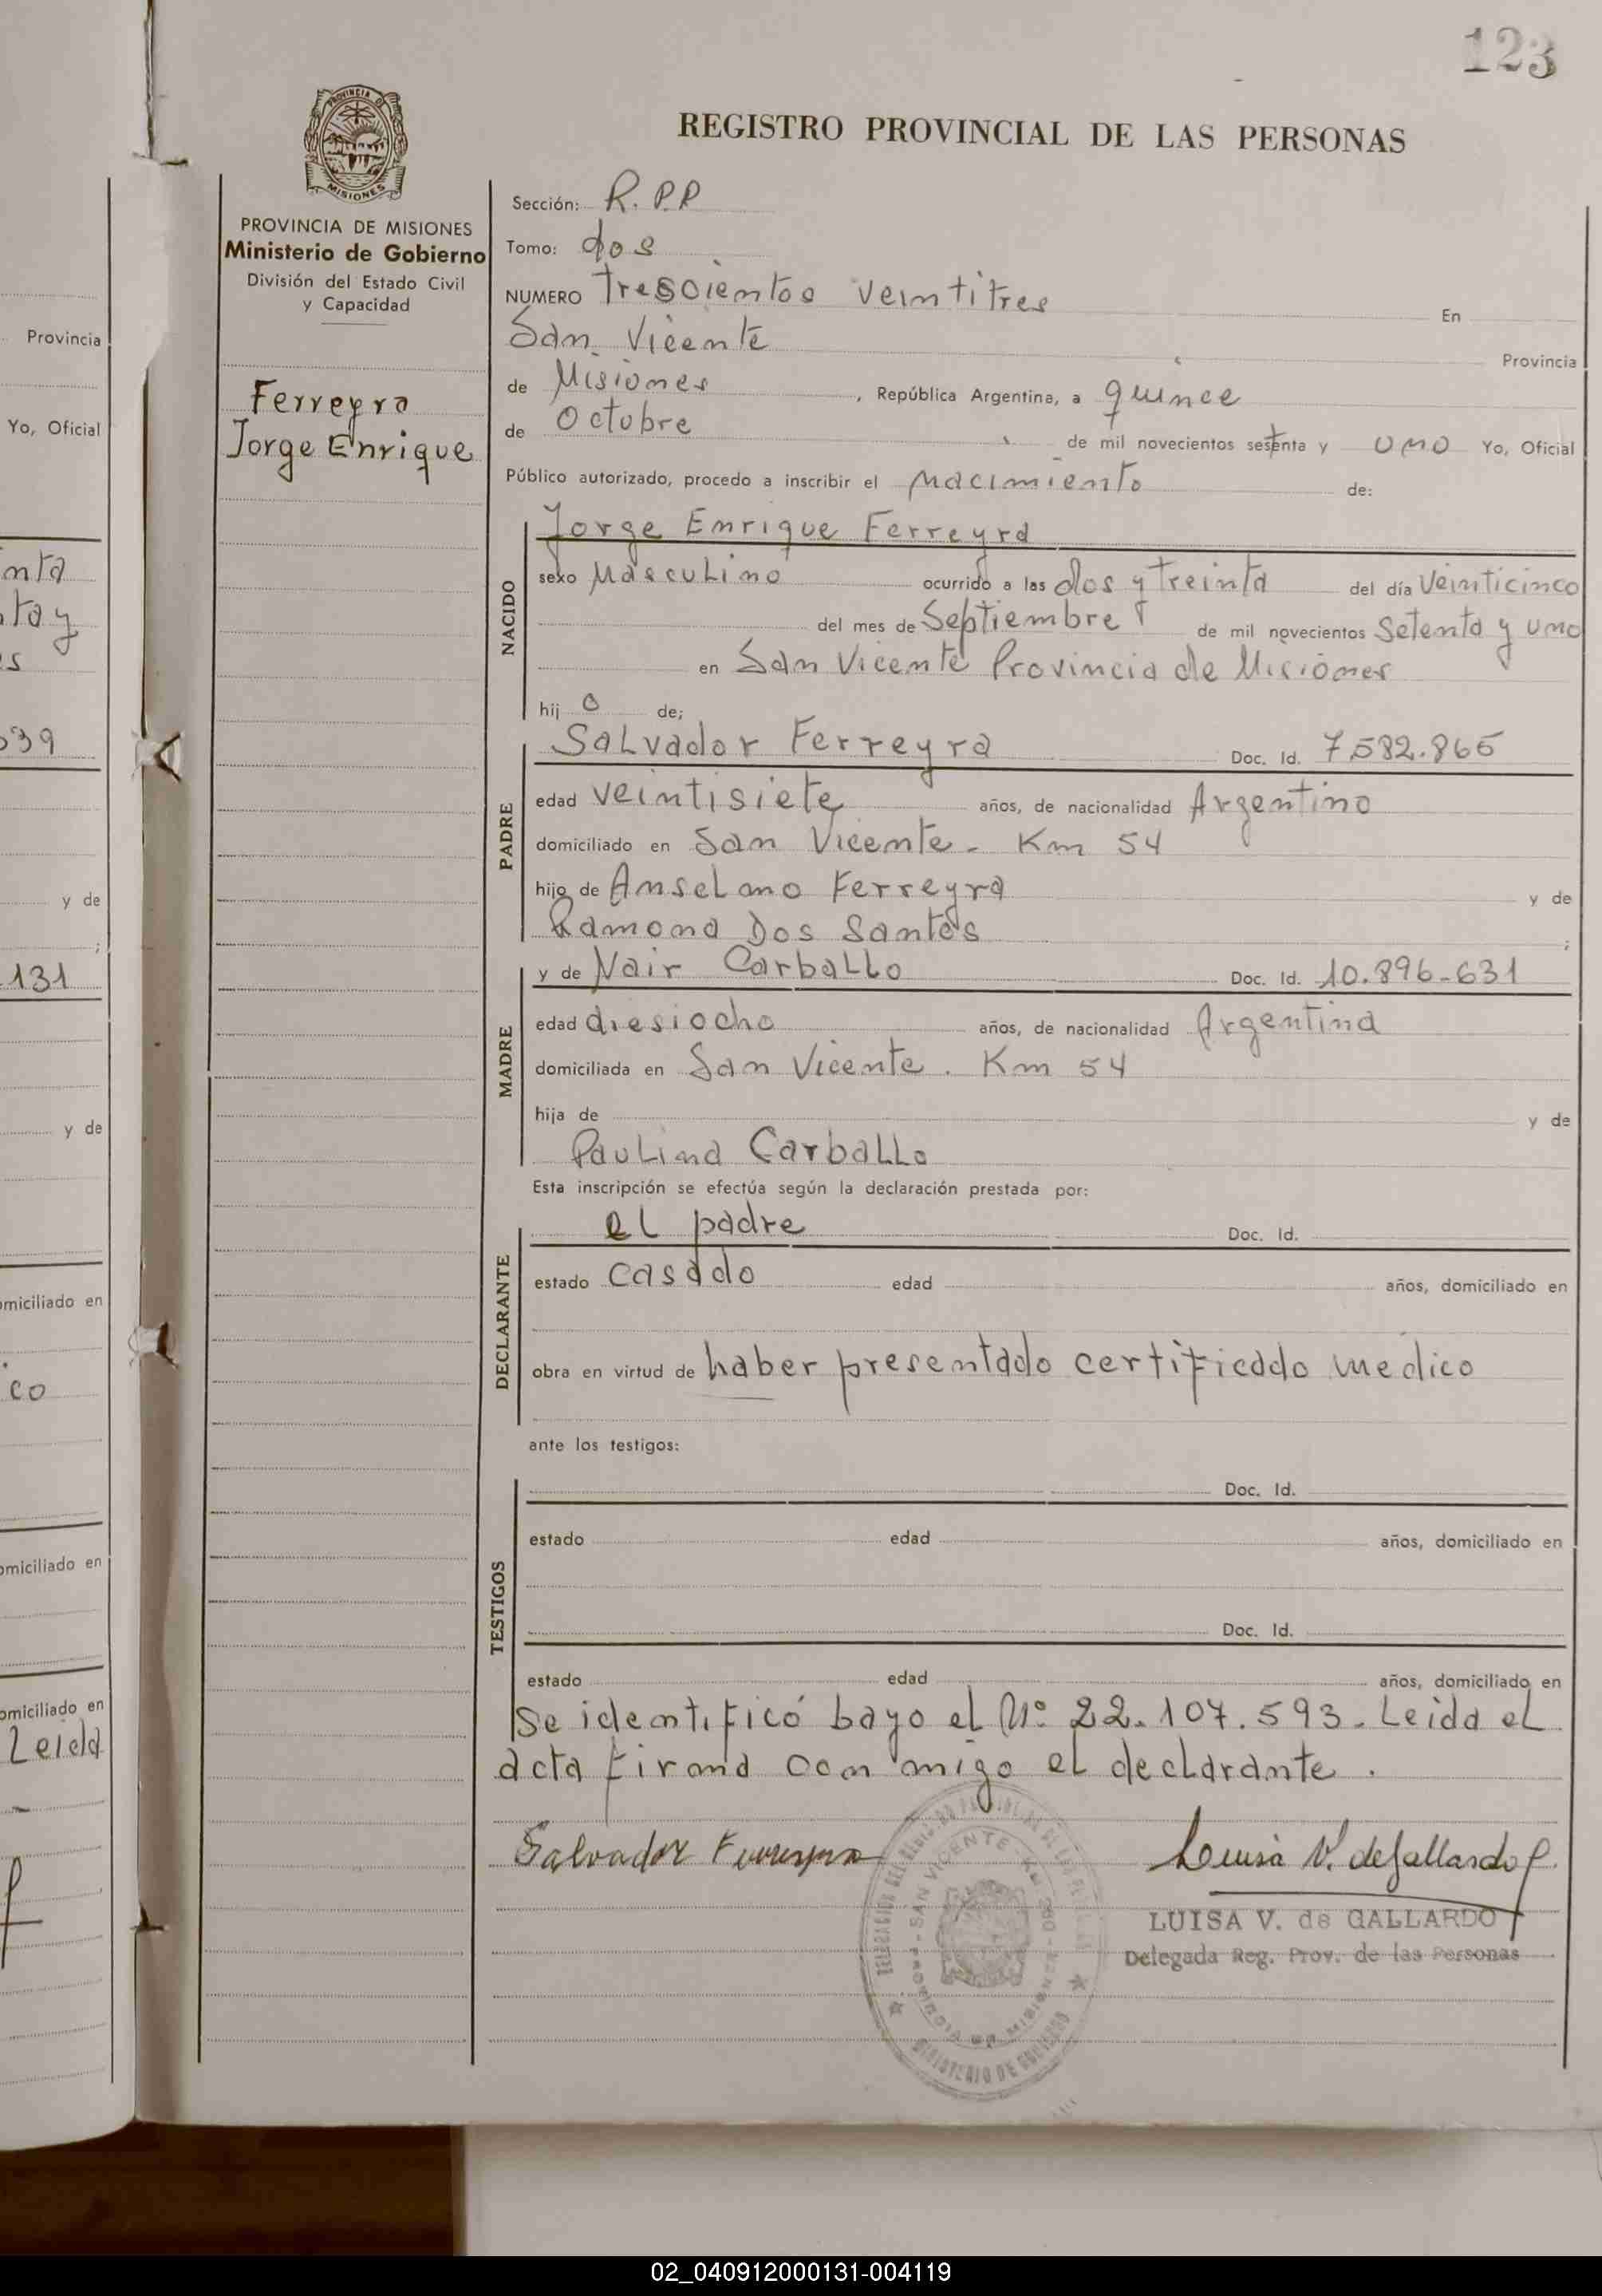 123
REGISTRO PROVINCIAL DE LAS PERSONAS
PROVINCIA DE MISIONES
PROVINCIA DE MISIONES
Ministerio de Gobierno
División del Estado Civil
y Capacidad
Ferreyra
Jorge Enrique
Sección: R.P.P
Tomo: dos
NUMERO Trescientos veintitres En
San Vicente Provincia
de Misiones, República Argentina, a quince
de Octubre de mil novecientos setenta y uno Yo, Oficial
Público autorizado, procedo a inscribir el nacimiento de:
NACIDO
Jorge Enrique Ferreyra
sexo Masculino ocurrido a las dos y treinta del día veinticinco
del mes de Septiembre de mil novecientos Setenta y uno
en San Vicente Provincia de Misiones
hij o de;
PADRE
Salvador Ferreyra Doc. Id. 7.582.865
edad veintisiete años, de nacionalidad Argentino
domiciliado en San Vicente - Km 54
hijo de Anselmo Ferreyra y de
Ramona Dos Santos ;
MADRE
y de Nair Carballo Doc. Id. 10.896-631
edad diesiocho años, de nacionalidad Argentina
domiciliada en San Vicente. Km 54
hija de y de
Paulina Carballo
Esta inscripción se efectúa según la declaración prestada por:
DECLARANTE
el padre Doc. Id.
estado casado edad años, domiciliado en
obra en virtud de haber presentado certificado medico
ante los testigos:
TESTIGOS
Doc. Id.
estado edad años, domiciliado en
Doc. Id.
estado edad años, domiciliado en
Se identificó bayo el Nº 22.107.593. Leida el
acta firma con migo el declarante.
Salvador Ferreyra
Luisa V. de Gallardo
LUISA V. de GALLARDO
Delegada Reg. Prov. de las Personas
SAN VICENTE
MINISTERIO DE GOBIERNO
Provincia
Yo, Oficial
nta
ta y
es
039
y de
;
131
y de
omiciliado en
co
omiciliado en
omiciliado en
Leida
02_040912000131-004119